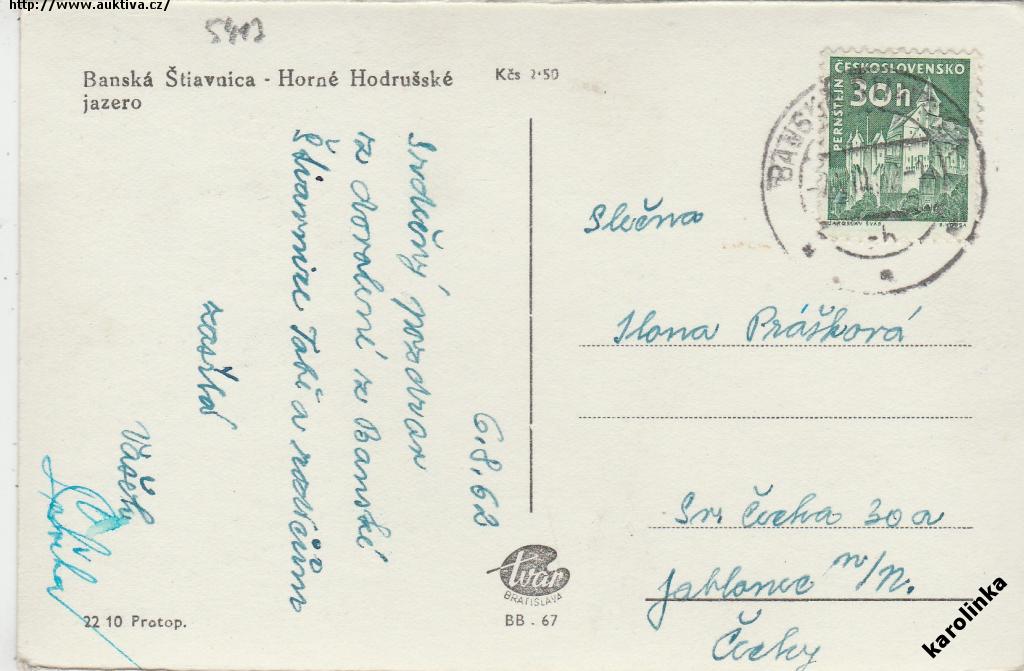 http://www.auktiva.cz/
5413
Banská Štiavnica - Horné Hodrušské
jazero
Kčs 2·50
ČESKOSLOVENSKO
30h
PERNŠTEJN
JAROSLAV ŠVÁB
BANSKÁ
-h
6.8.62
Srdečný pozdrav
z dovolení z Banské
Štiavnice Tobě a rodičům
zasílá
Vašek
Slečna
Ilona Prášková
Sv. Čecha 30a
Jablonec n/N.
Čechy
tvar
BRATISLAVA
BB - 67
22 10 Protop.
karolinka